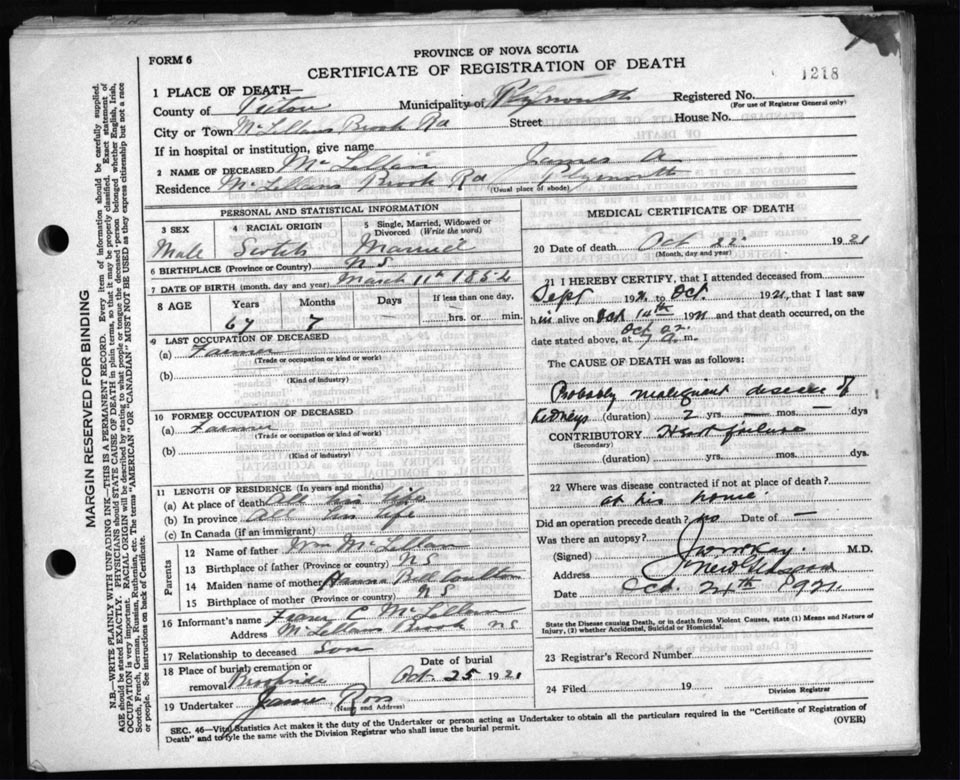 PROVINCE OF NOVA SCOTIA
FORM 6
CERTIFICATE OF REGISTRATION OF DEATH
1218
1 PLACE OF DEATH—
County of Pictou Municipality of Plymouth Registered No.
(For use of Registrar General only)
City or Town McLellans Brook Rd Street House No.
If in hospital or institution, give name
2 NAME OF DECEASED McLellan James A
Residence McLellans Brook Rd Plymouth
(Usual place of abode)
PERSONAL AND STATISTICAL INFORMATION
3 SEX 4 RACIAL ORIGIN 5 Single, Married, Widowed or Divorced (Write the word)
Male Scotch Married
6 BIRTHPLACE (Province or Country) N S
7 DATE OF BIRTH (month, day and year) March 11th 1852
8 AGE Years Months Days If less than one day,
67 7 — hrs. or min.
9 LAST OCCUPATION OF DECEASED
(a) Farmer
(Trade or occupation or kind or work)
(b)
(Kind of industry)
10 FORMER OCCUPATION OF DECEASED
(a) Farmer
(Trade or occupation or kind of work)
(b)
(Kind of industry)
11 LENGTH OF RESIDENCE (In years and months)
(a) At place of death All his life
(b) In province All his life
(c) In Canada (if an immigrant)
Parents
12 Name of father Wm McLellan
13 Birthplace of father (Province or country) N S
14 Maiden name of mother Hanna Bell
15 Birthplace of mother (Province or country) N S
16 Informant's name C McLellan
Address McLellans Brook N S
17 Relationship to deceased Son
18 Place of burial, cremation or removal Date of burial
Oct. 25 1921
19 Undertaker James Ross
(Name and Address)
MEDICAL CERTIFICATE OF DEATH
20 Date of death Oct 22 1921
(Month, day and year)
21 I HEREBY CERTIFY, that I attended deceased from
Sept 1921 to Oct. 1921, that I last saw
him alive on Oct 14th 1921 and that death occurred, on the
date stated above, at 7 a.m.
The CAUSE OF DEATH was as follows:
Probably malignant disease of
kidneys (duration) 2 yrs. — mos. — dys
CONTRIBUTORY Heart failure
(Secondary)
(duration) yrs. mos. dys.
22 Where was disease contracted if not at place of death?
at his home.
Did an operation precede death? No Date of —
Was there an autopsy?
(Signed) J W McKay M.D.
Address New Glasgow
Date Oct. 24th 1921
State the Disease causing Death, or in death from Violent Causes, state (1) Means and Nature of
Injury, (2) whether Accidental, Suicidal or Homicidal.
23 Registrar's Record Number
24 Filed 19
Division Registrar
SEC. 46—Vital Statistics Act makes it the duty of the Undertaker or person acting as Undertaker to obtain all the particulars required in the "Certificate of Registration of
Death" and to fyle the same with the Division Registrar who shall issue the burial permit.
(OVER)
MARGIN RESERVED FOR BINDING
N.B.—WRITE PLAINLY WITH UNFADING INK—THIS IS A PERMANENT RECORD. Every item of information should be carefully supplied.
AGE should be stated EXACTLY. PHYSICIANS should STATE CAUSE OF DEATH in plain terms, so that it may be properly classified. Exact statement of
OCCUPATION is very important. RACIAL ORIGIN will be described by stating to what people or tongue the deceased person belonged, whether English, Irish,
Scotch, French, German, Russian, Ruthenian, etc. The terms "AMERICAN" OR "CANADIAN" MUST NOT BE USED as they express citizenship but not a race
or people. See instructions on back of Certificate.